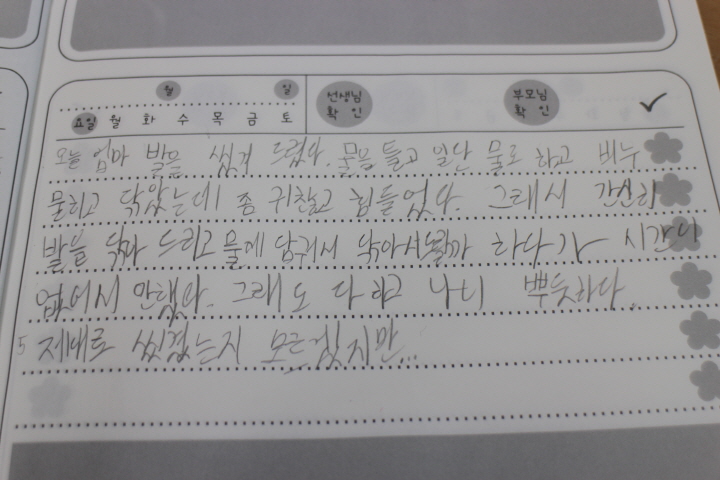 월 일
요일 월 화 수 목 금 토
선생님
확 인
부모님
확 인
오늘 엄마 발을 씻겨 드렸다. 물을 틀고 일단 물로 하고 비누
물히고 닦았는데 좀 귀찮고 힘들었다. 그래서 간신히
발을 닦아 드리고 물에 담궈서 닦아서 하다가 시간이
없어서 안했다. 그래도 다 하고 나니 뿌듯하다.
5 제대로 씻겼는지 모르겠지만...